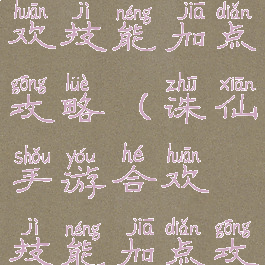 huān jì néng jiā diǎn
欢技能加点
gōng lüè zhū xiān
攻略(诛仙
shǒu yóu hé huān
手游合欢
jì néng jiā diǎn gōng
技能加点攻